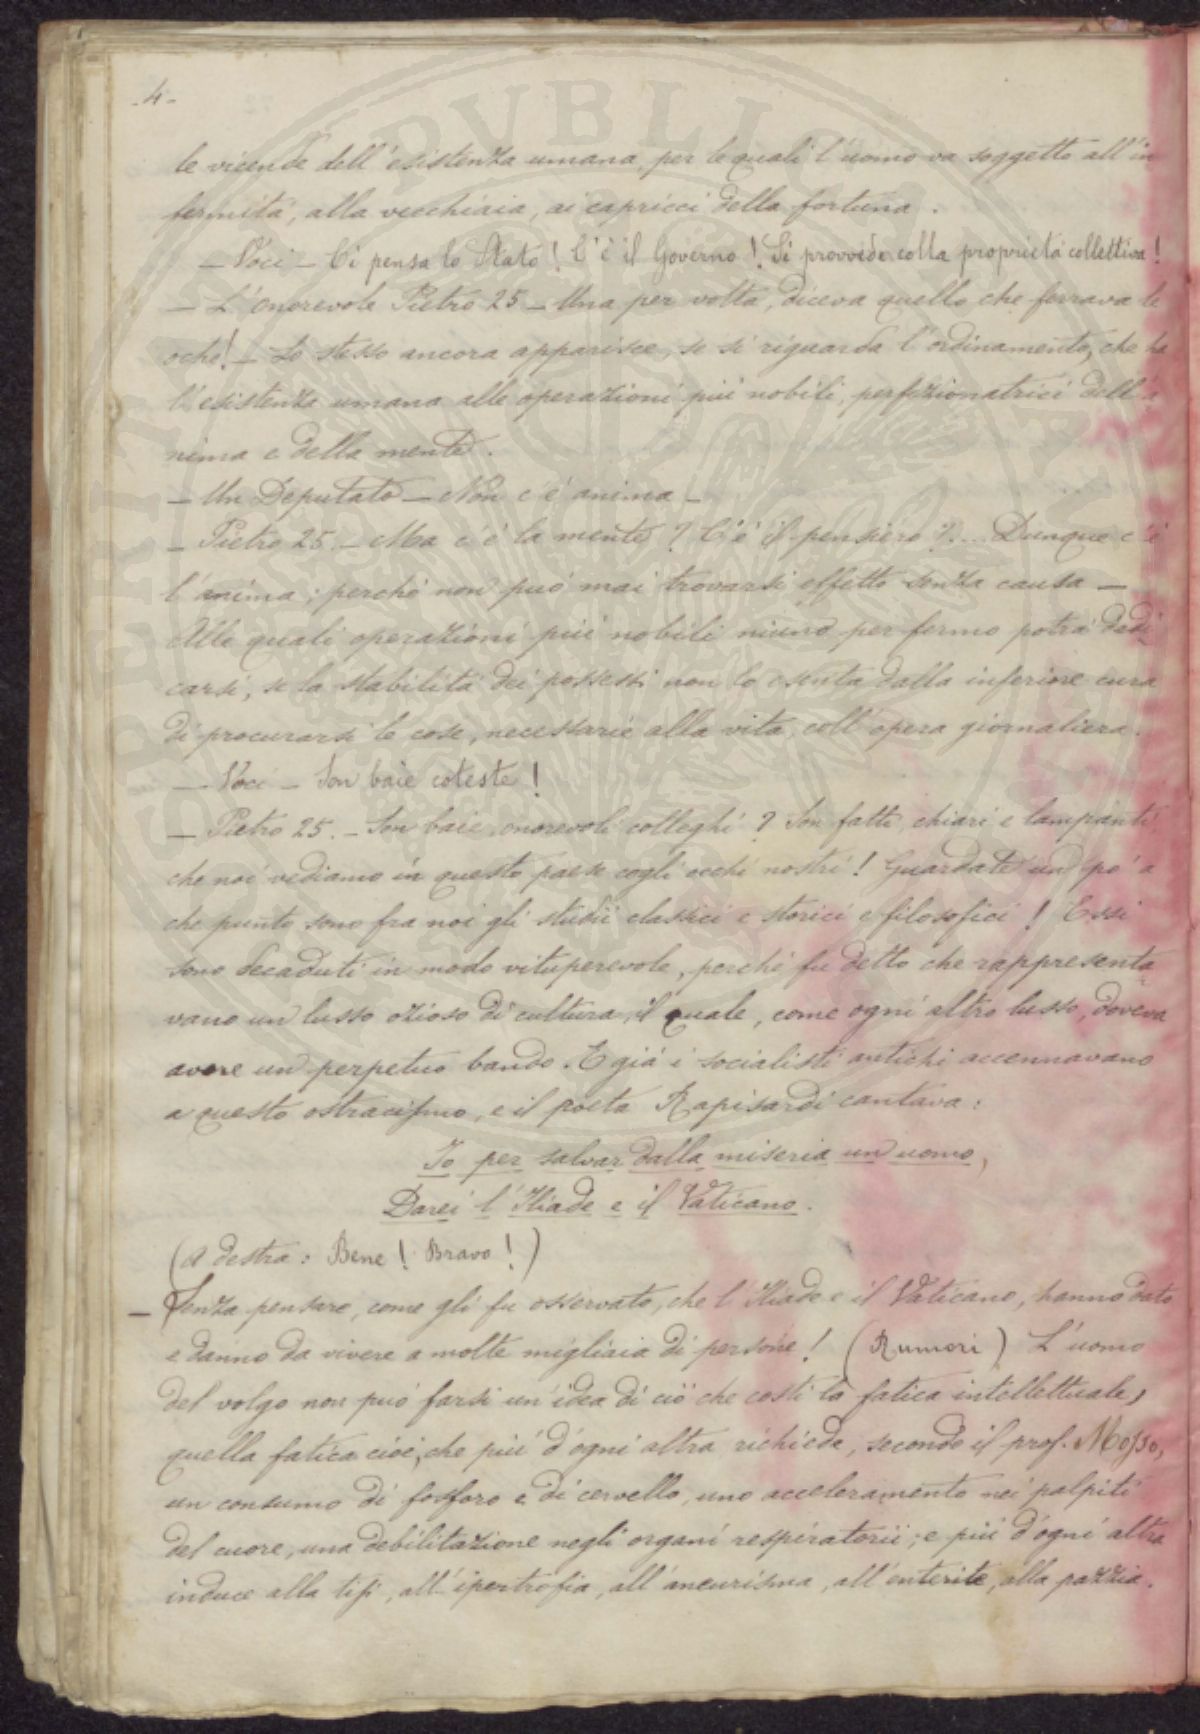 -4-
le vicende dell'esistenza umana, per le quali l'uomo va soggetto all'in
fermità, alla vecchiaia, ai capricci della fortuna.
— Voci — Ci pensa lo Stato! C'è il Governo! Si provvede colla proprietà collettiva!
— L'onorevole Pietro 25 — Una per volta, diceva quello che ferrava le
oche! — Lo stesso ancora apparisce, se si riguarda l'ordinamento, che ha
l'esistenza umana alle operazioni più nobili, perfezionatrici dell'a
nima e della mente.
— Un Deputato — Non c'è anima —
— Pietro 25. — Ma c'è la mente? C'è il pensiero?... Dunque c'è
l'anima; perchè non può mai trovarsi effetto senza causa —
Alle quali operazioni più nobili niuno per fermo potrà dedi
carsi, se la stabilità dei possessi non lo esenta dalla inferiore cura
di procurarsi le cose, necessarie alla vita, coll'opera giornaliera.
— Voci — Son baie coteste!
— Pietro 25. — Son baie, onorevoli colleghi? Son fatti chiari e lampanti
che noi vediamo in questo paese cogli occhi nostri! Guardate un po' a
che punto sono fra noi gli studii classici e storici e filosofici! Essi
sono decaduti in modo vituperevole, perchè fu detto che rappresenta
vano un lusso ozioso di cultura, il quale, come ogni altro lusso, doveva
avere un perpetuo bando. E già i socialisti antichi accennavano
a questo ostracismo, e il poeta Rapisardi cantava:
Io per salvar dalla miseria un uomo,
Darei l'Iliade e il Vaticano.
(A destra: Bene! Bravo!)
— Senza pensare, come gli fu osservato, che l'Iliade e il Vaticano, hanno dato
e danno da vivere a molte migliaia di persone! (Rumori) L'uomo
del volgo non può farsi un'idea di ciò che costi la fatica intellettuale,
quella fatica cioè, che più d'ogni altra richiede, secondo il prof. Mosso,
un consumo di fosforo e di cervello, uno acceleramento nei palpiti
del cuore, una debilitazione negli organi respiratorii; e più d'ogni altra
induce alla tisi, all'ipertrofia, all'aneurisma, all'enterite, alla pazzia.